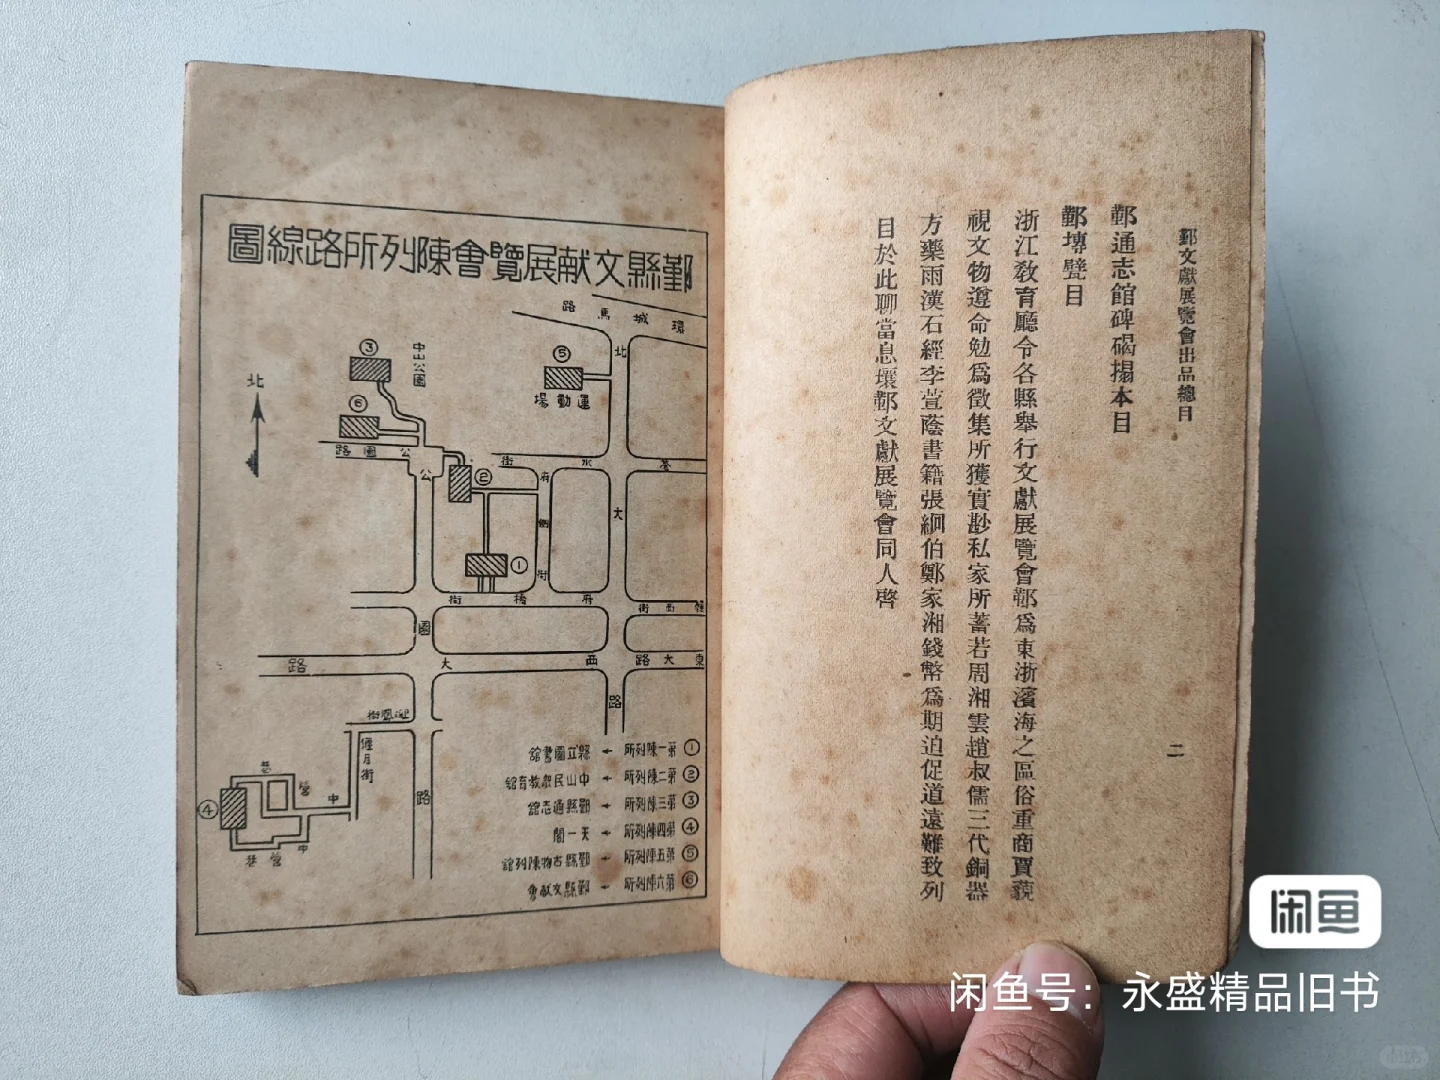 鄞文獻展覽會出品總目
二
鄞通志館碑碣搨本目
鄞塼甓目
浙江教育廳令各縣舉行文獻展覽會鄞爲東浙濱海之區俗重商賈藐
視文物遵命勉爲徵集所獲實尠私家所蓄若周湘雲趙叔儒三代銅器
方藥雨漢石經李萱蔭書籍張絅伯鄭家湘錢幣爲期迫促道遠難致列
目於此聊當息壤鄞文獻展覽會同人啓
鄞縣文獻展覽會陳列所路線圖
環城馬路
北
③
中山公園
⑤
運動場
北
⑥
公園路
②
蒼水街
公
府側街
大
①
府橋街
鎮西街
園
東大路
西大路
路
迎鳳街
偃月街
路
④
中營巷
中營巷
①第一陳列所 縣立圖書館
②第二陳列所 中山民衆教育館
③第三陳列所 鄞縣通志館
④第四陳列所 天一閣
⑤第五陳列所 鄞縣古物陳列館
⑥第六陳列所 鄞縣文獻會
闲鱼
闲鱼号：永盛精品旧书